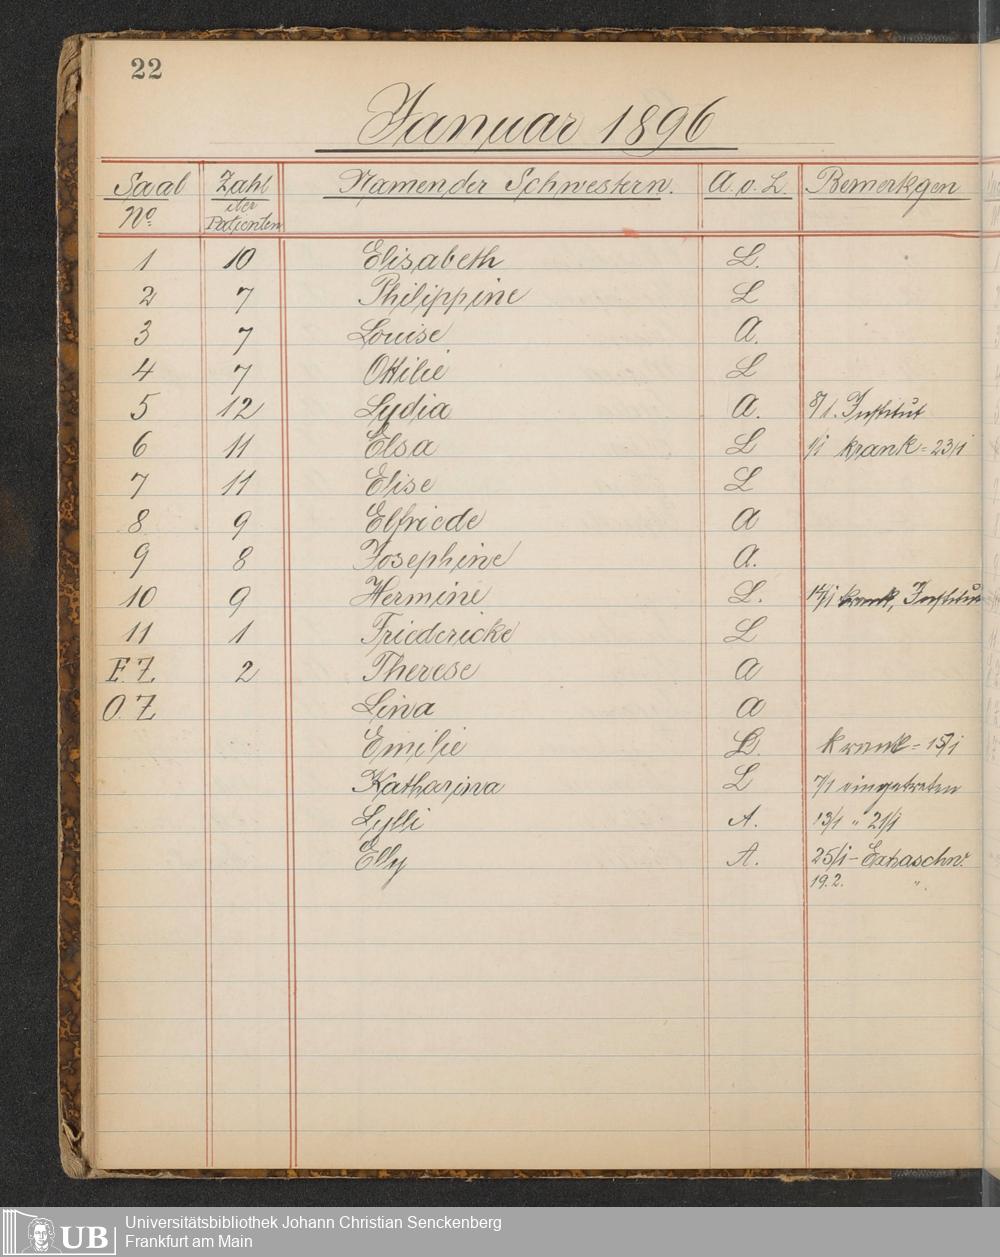 22
Januar 1896
Saal No Zahl der Patienten Namen der Schwestern. A. o. L. Bemerkgen
1 10 Elisabeth L.
2 7 Philippine L
3 7 Louise A.
4 7 Ottilie L
5 12 Lydia A. 8/1. Institut
6 11 Elsa L 1/1 krank = 23/1
7 11 Elise L
8 9 Elfriede A
9 8 Josephine A.
10 9 Hermine L. krank, Institut
11 1 Friedericke L
E. Z. 2 Therese A
O. Z Lina A
Emilie L. krank = 15/1
Katharina L 7/1 eingetreten
Lylli A. 13/1 " 21/1
Elly A. 25/1 - Extraschw.
19. 2. "
UB
Universitätsbibliothek Johann Christian Senckenberg
Frankfurt am Main